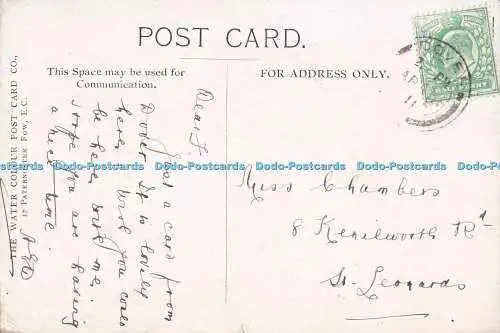 POST CARD.
This Space may be used for
Communication.
FOR ADDRESS ONLY.
THE WATER COLOUR POST CARD CO.,
17 PATERNOSTER ROW, E.C.
Dear F.
Just a card from
Dover. It is lovely
here, wish you could
be here with me.
I hope you are having
a nice time.
Miss Chambers
8 Kenilworth Rd
St. Leonards
Dodo-Postcards Dodo-Postcards Dodo-Postcards Dodo-Postcards Dodo-Postcards